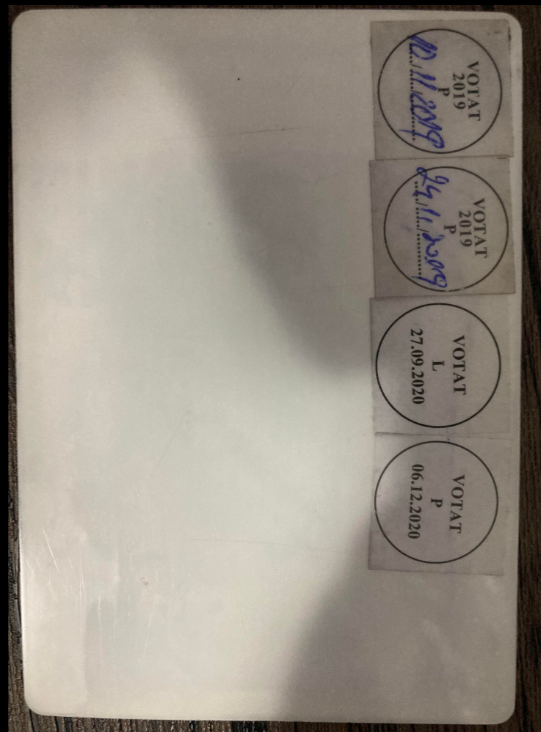 VOTAT
2019
P
10.11.2019
VOTAT
2019
P
24.11.2019
VOTAT
L
27.09.2020
VOTAT
P
06.12.2020